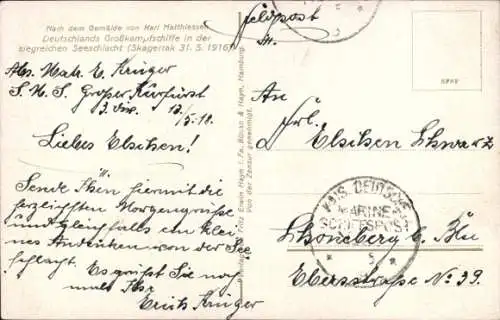 Nach dem Gemälde von Karl Matthiessen
Deutschlands Großkampfschiffe in der
siegreichen Seeschlacht (Skagerrak 31. 5. 1916)
Feldpost
Abs. Matr. E. Krüger
S. M. S. Großer Kurfürst
3. Div. 13/5.18.
Liebes Elschen!
Sende Ihnen hiermit die
herzlichsten Morgengrüße
und gleichfalls ein klei
nes Andenken von der See
schlacht. Es grüßt Sie noch
mals Ihr
Erich Krüger
Verlag Fritz Erwin Hayn i. Fa. Hayn, Hamburg.
Von der Zensur genehmigt.
An
Frl.
Elschen Schwarz
KAIS. DEUTSCHE
MARINE-
SCHIFFSPOST
5
Schöneberg b. Bln
Ebersstraße No 39.